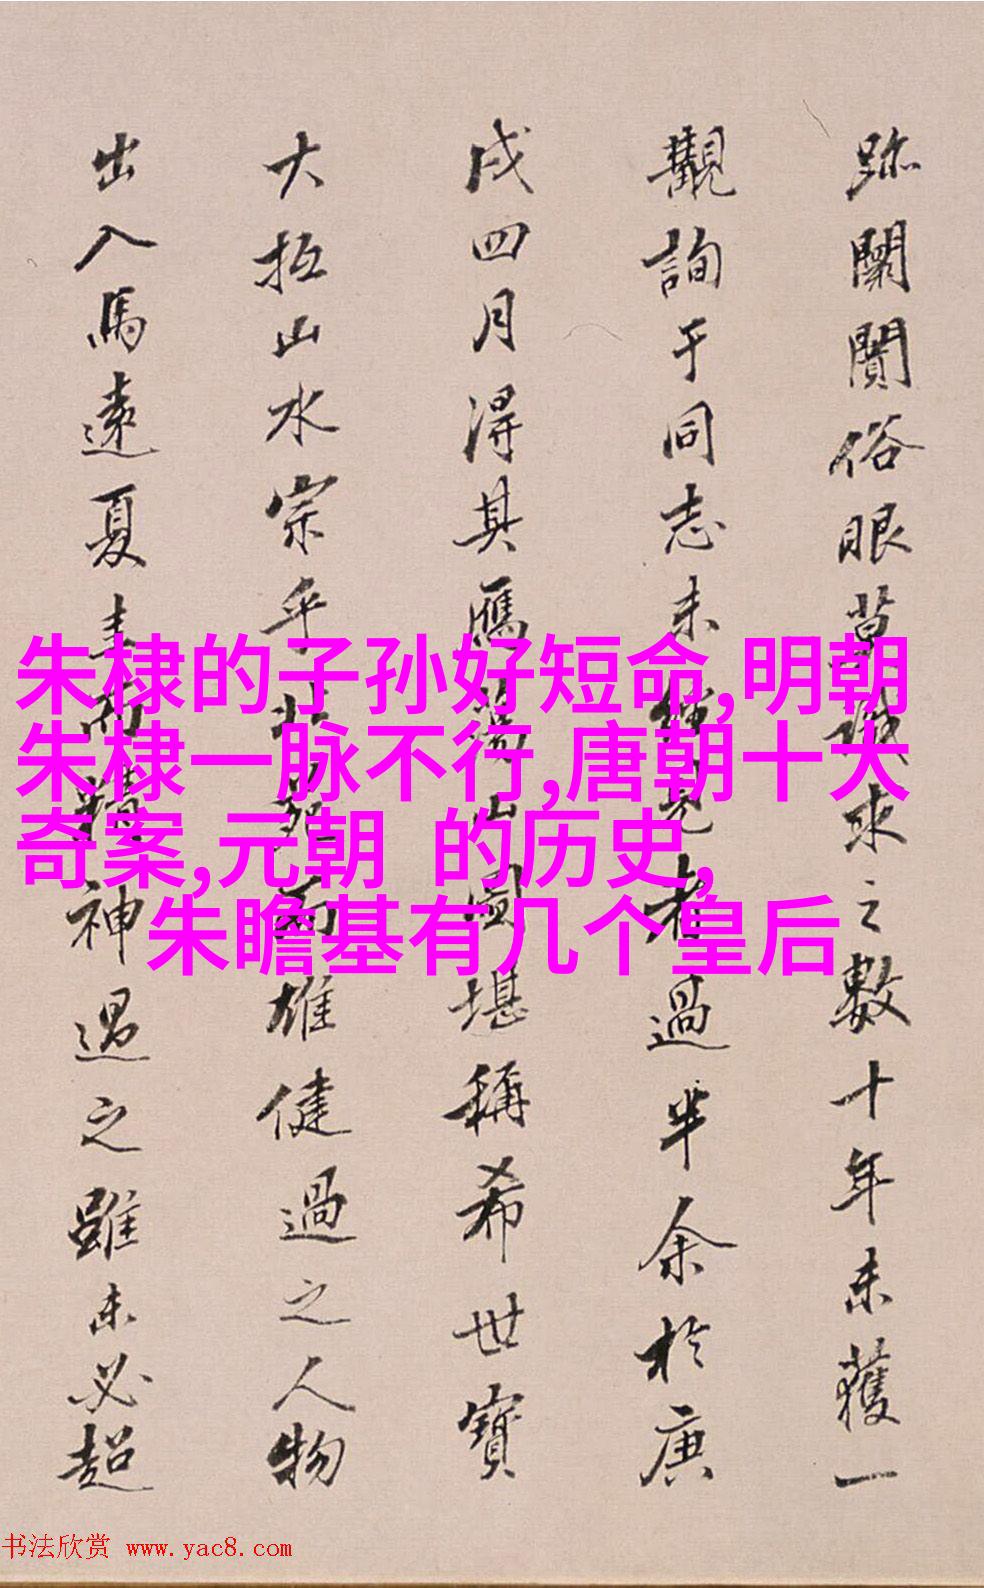 跡闤闠俗眼求之數十年未獲一
觀詢于同志未經見者過半余於庚
戌四月得其鴈蕩山圖堪稱希世寶
大抵山水宗乎北苑而雄健過之人物
出入馬遠夏圭而精神過之雖未必超
朱棣的子孙好短命,明朝
朱棣一脉不行,唐朝十大
奇案,元朝 的历史,
朱瞻基有几个皇后
书法欣赏 www.yac8.com